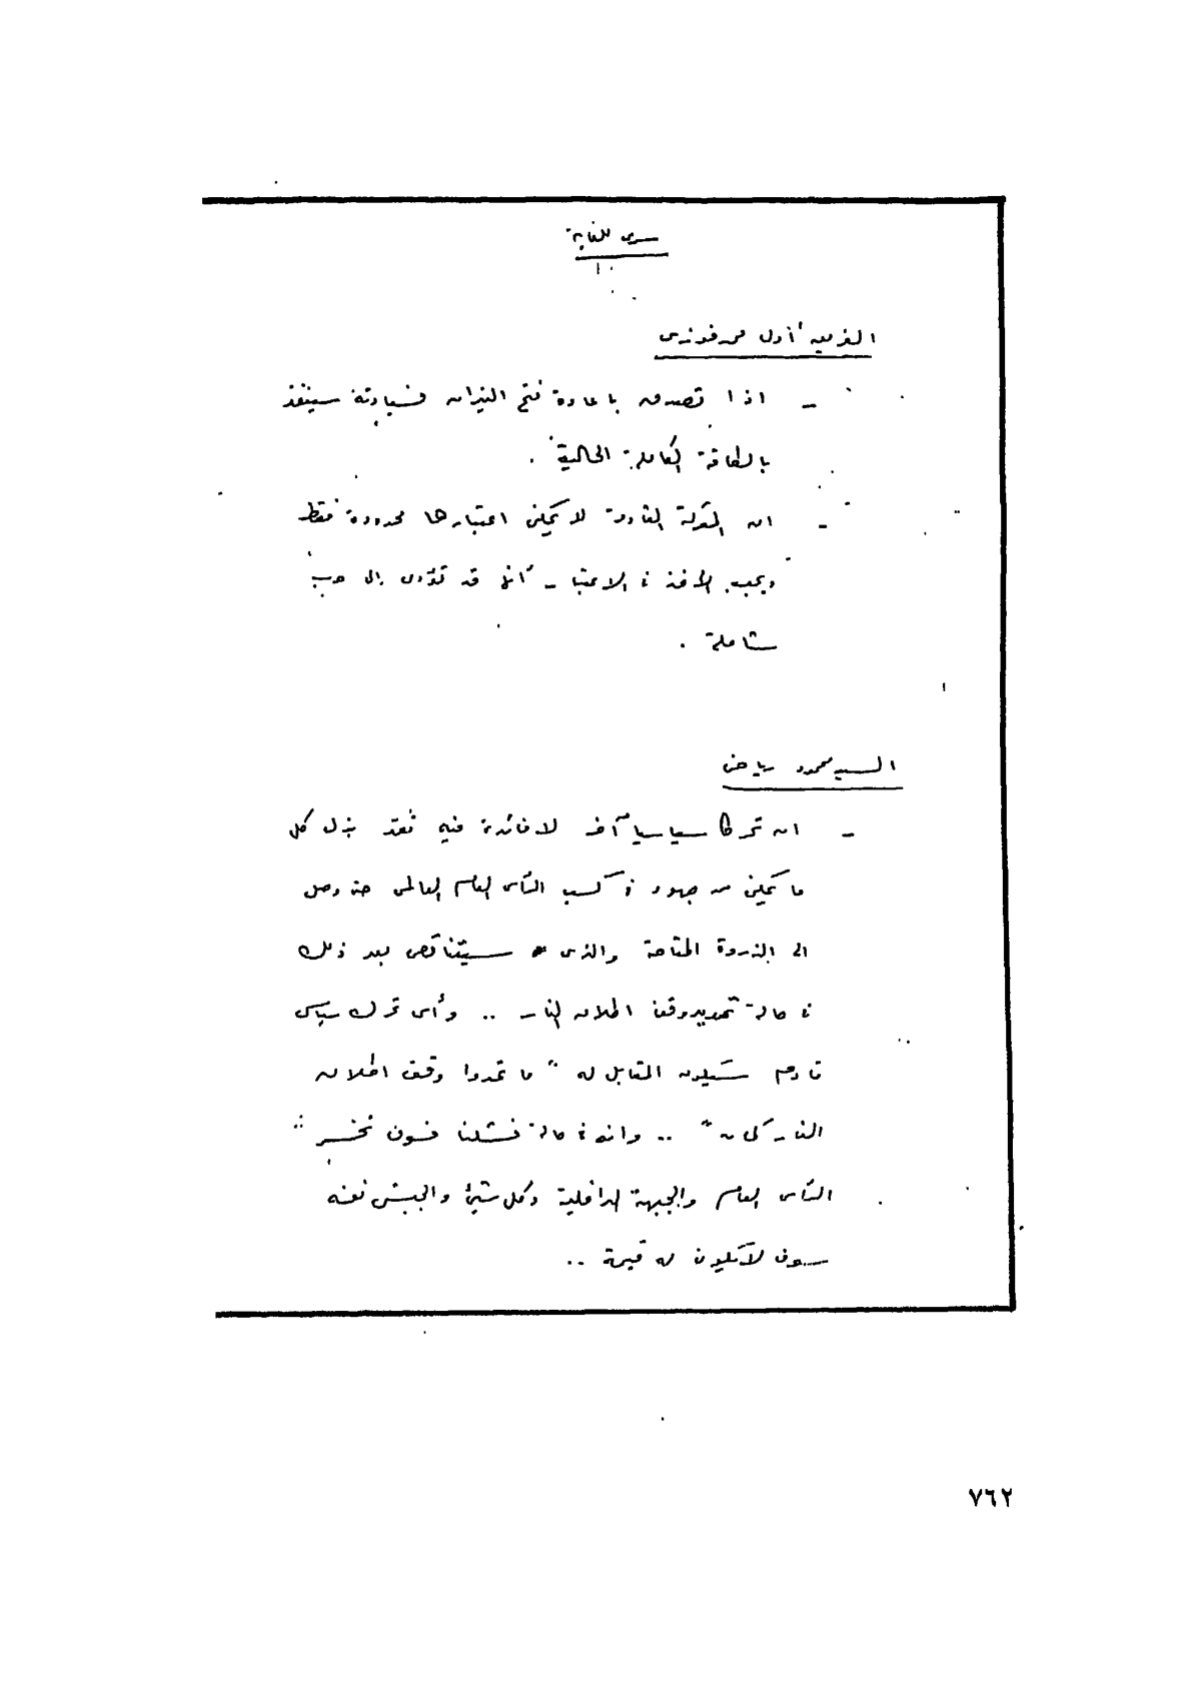 سرى للغاية
١٠
الفريق أول محمد فوزى
- اذا تصدق باعادة فتح النيران فسيادته سينفذ
بالطاقة الكاملة الحالية .
- ان المعركة القادمة لا يمكن اعتبارها محدودة فقط
ويجب الأخذ فى الاعتبار أنها قد تؤدى الى حرب
شاملة .
السيد محمود رياض
- ان تحركا سياسيا آخر لا فائدة فيه فقد بذل كل
ما يمكن من جهود فى كسب الرأى العام العالمى حتى وصل
الى الذروة المتاحة والذى سيتناقص بعد ذلك
فى حالة تمديد وقف اطلاق النار .. وأى تحرك سياسى
قادم سيكون المقابل له " ما تمدوا وقف اطلاق
النار كمان " .. وانه فى حالة فشلنا فسوف نخسر :
الرأى العام والجبهة الداخلية وكل شىء والجيش نفسه
سوف لا يكون له قيمة ..
٧٦٢